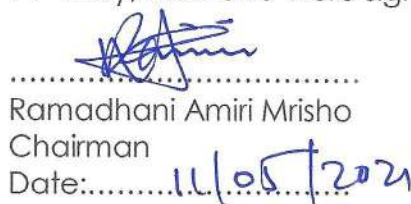 ....................................
Ramadhani Amiri Mrisho
Chairman
Date:......11/05/2021